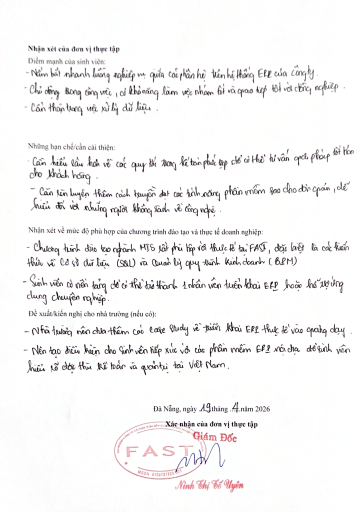 Nhận xét của đơn vị thực tập
Điểm mạnh của sinh viên:
- Nắm bắt nhanh luồng nghiệp vụ giữa các phân hệ trên hệ thống ERP của công ty.
- Chủ động trong công việc, có khả năng làm việc nhóm tốt và giao tiếp tốt với đồng nghiệp.
- Cẩn thận trong việc xử lý dữ liệu.
Những hạn chế/cần cải thiện:
- Cần hiểu sâu hơn về các quy tắc trong kế toán phức tạp để có thể tư vấn giải pháp tốt hơn
cho khách hàng.
- Cần rèn luyện thêm cách truyền đạt các tính năng phần mềm sao cho đơn giản, dễ
hiểu đối với những người không rành về công nghệ.
Nhận xét về mức độ phù hợp của chương trình đào tạo và thực tế doanh nghiệp:
- Chương trình đào tạo ngành MIS rất phù hợp với thực tế tại FAST, đặc biệt là các kiến
thức về cơ sở dữ liệu (SQL) và Quản lý quy trình kinh doanh (BPM)
- Sinh viên có nền tảng để có thể trở thành 1 nhân viên triển khai ERP hoặc hỗ trợ ứng
dụng chuyên nghiệp.
Đề xuất/kiến nghị cho nhà trường (nếu có):
- Nhà trường nên đưa thêm các case study về triển khai ERP thực tế vào giảng dạy.
- Nên tạo điều kiện cho sinh viên tiếp xúc với các phần mềm ERP nội địa để sinh viên
hiểu rõ đặc thù kế toán và quản trị tại Việt Nam.
Đà Nẵng, ngày 19 tháng 4 năm 2026
Xác nhận của đơn vị thực tập
Giám Đốc
FAST
Ninh Thị Tố Uyên